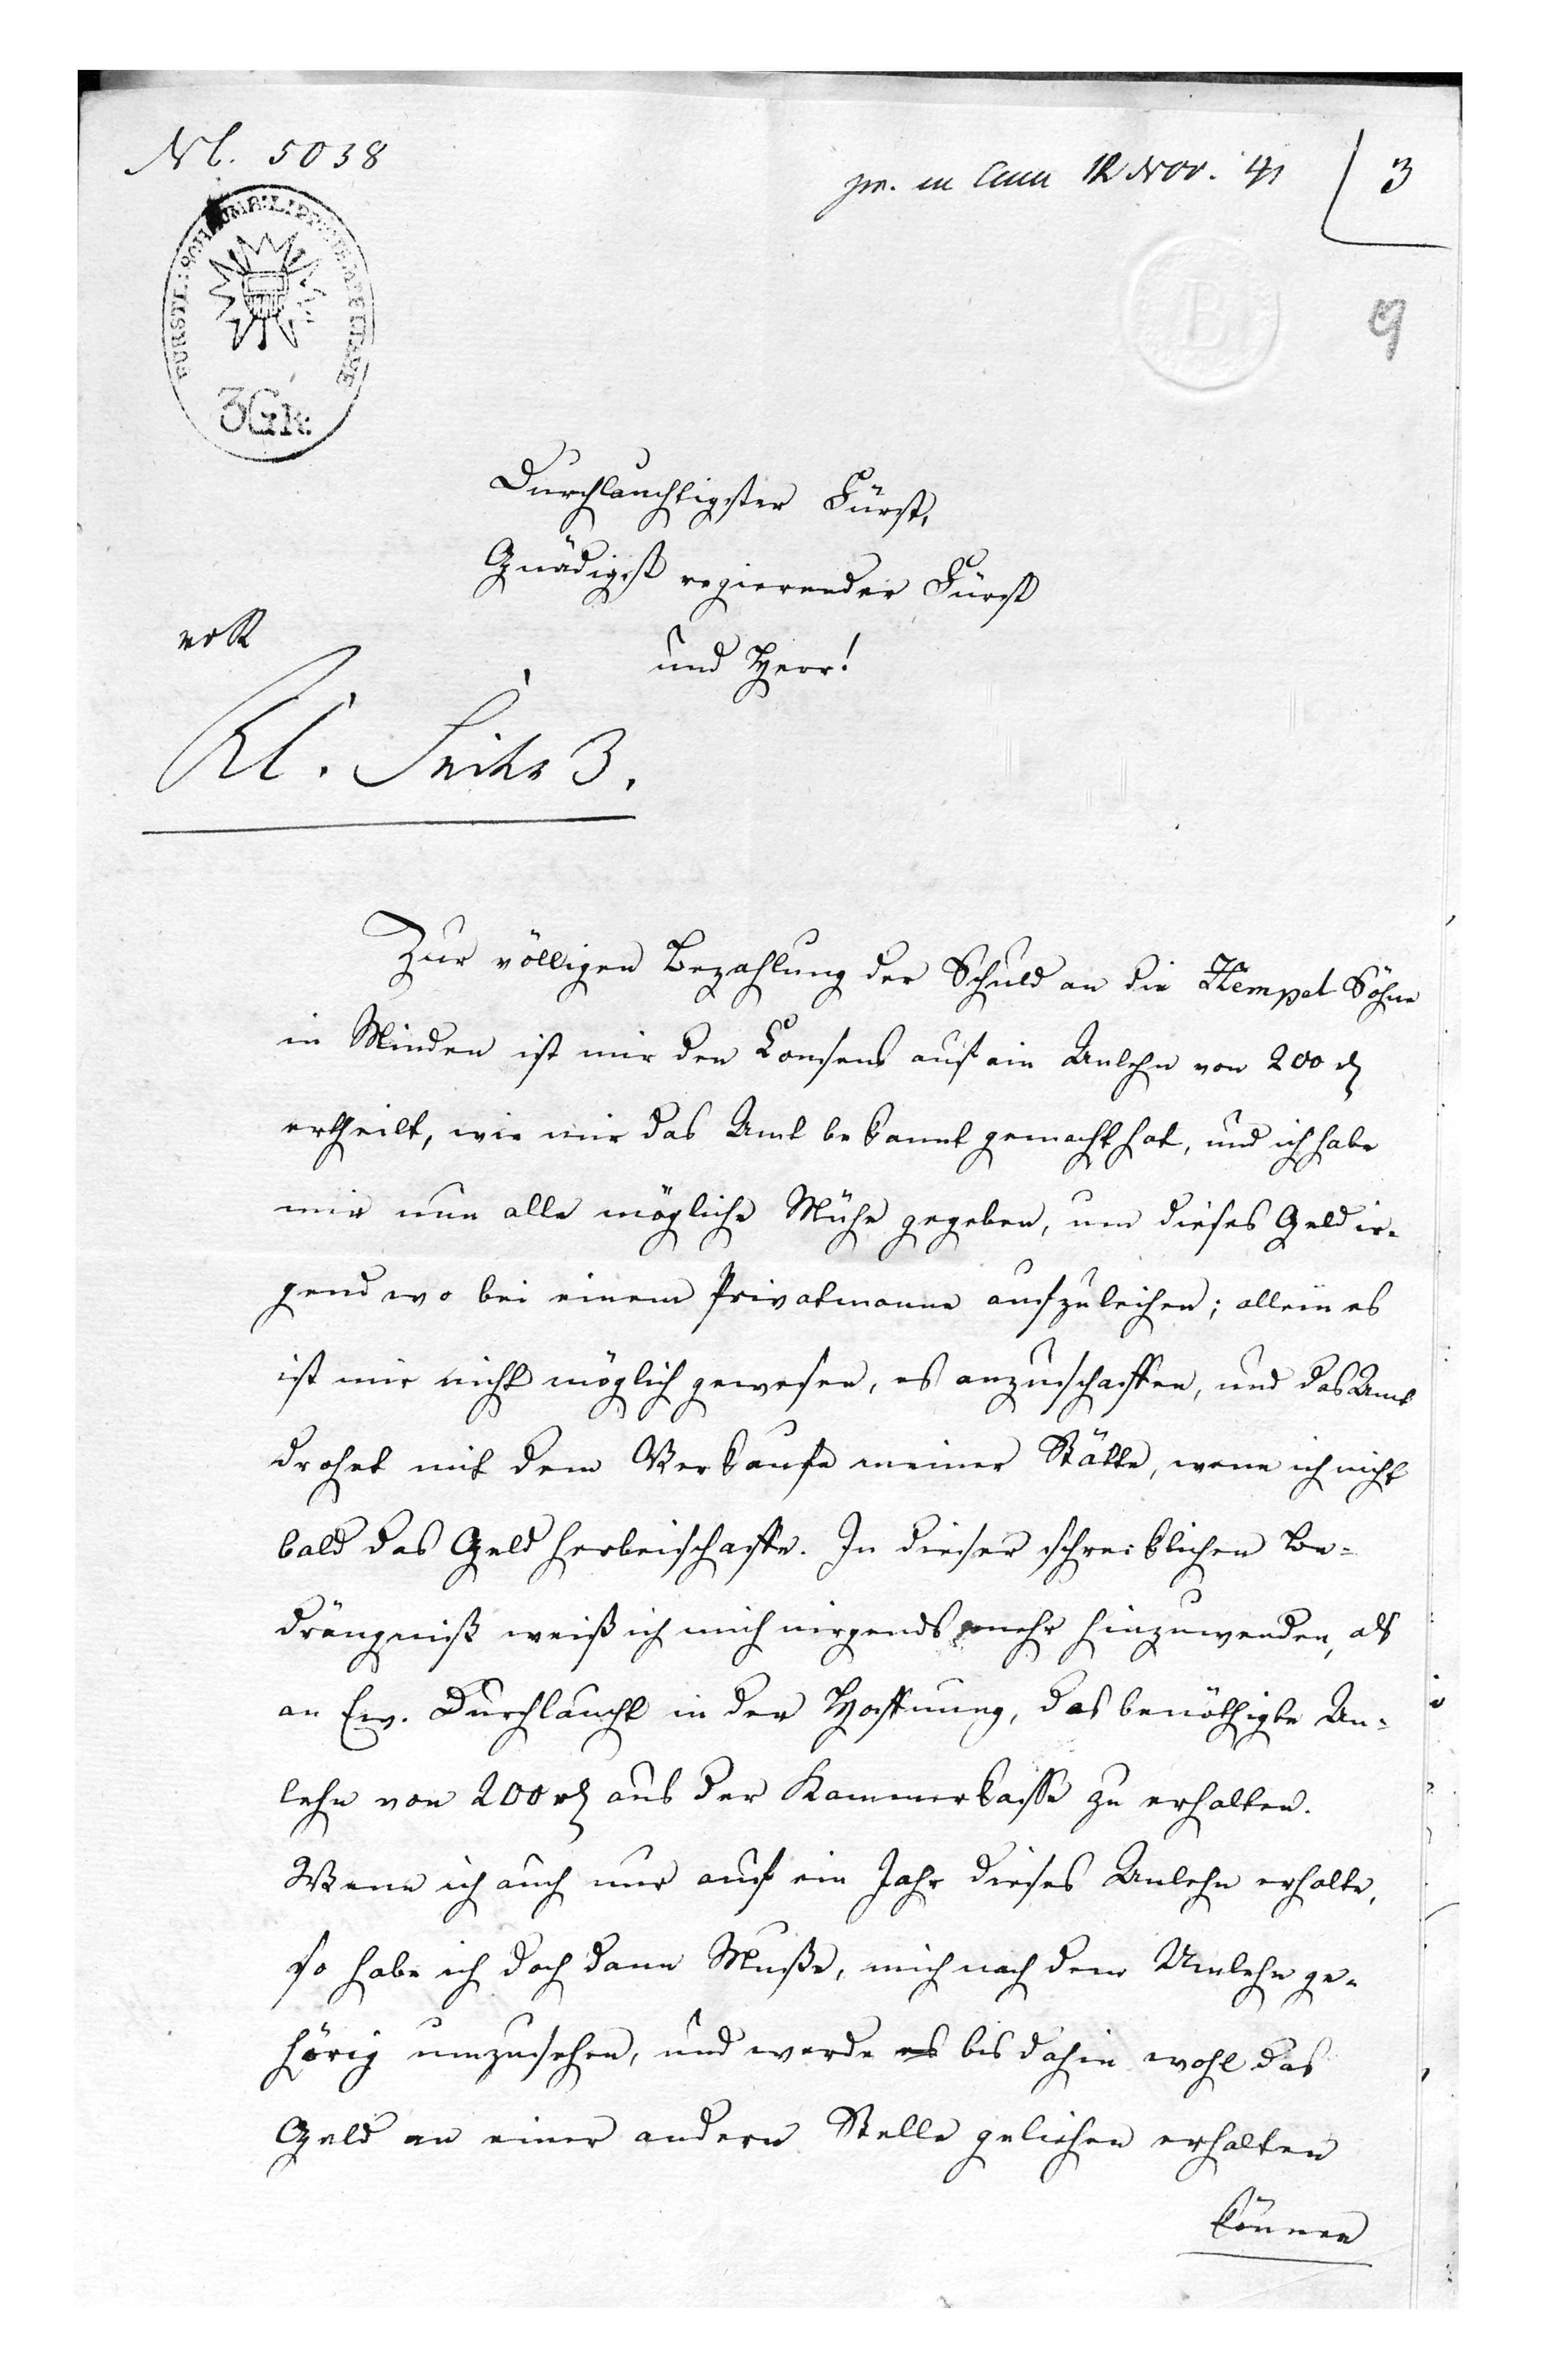 Nl. 5038
pr. in Cam 12 Nov. 41
3
9
FÜRSTL: SCHAUMB: LIPP:
3 Gr:
B
Durchlauchtigster Fürst,
Gnädigst regierender Fürst
und Herr!
Kl.
3.
Zur völligen Bezahlung der Schuld an die Hempel Söhne
in Minden ist mir der Consens auf ein Anlehn von 200 rh
ertheilt, wie mir das Amt bekannt gemacht hat, und ich habe
mir nun alle mögliche Mühe gegeben, um dieses Geld ir-
gend wo bei einem Privatmanne aufzuleihen; allein es
ist mir nicht möglich gewesen, es anzuschaffen, und das Amt
drohet mit dem Verkaufe meiner Stätte, wenn ich nicht
bald das Geld herbeischaffe. In dieser schrecklichen Be-
drängniß weiß ich mich nirgends mehr hinzuwenden, als
an Ew. Durchlaucht in der Hoffnung, das benöthigte An-
lehn von 200 rh aus der Kammerkasse zu erhalten.
Wenn ich auch nur auf ein Jahr dieses Anlehn erhalte,
so habe ich doch dann Muße, mich nach dem Anlehn ge-
hörig umzusehen, und werde es bis dahin wohl das
Geld an einer andern Stelle geliehen erhalten
können